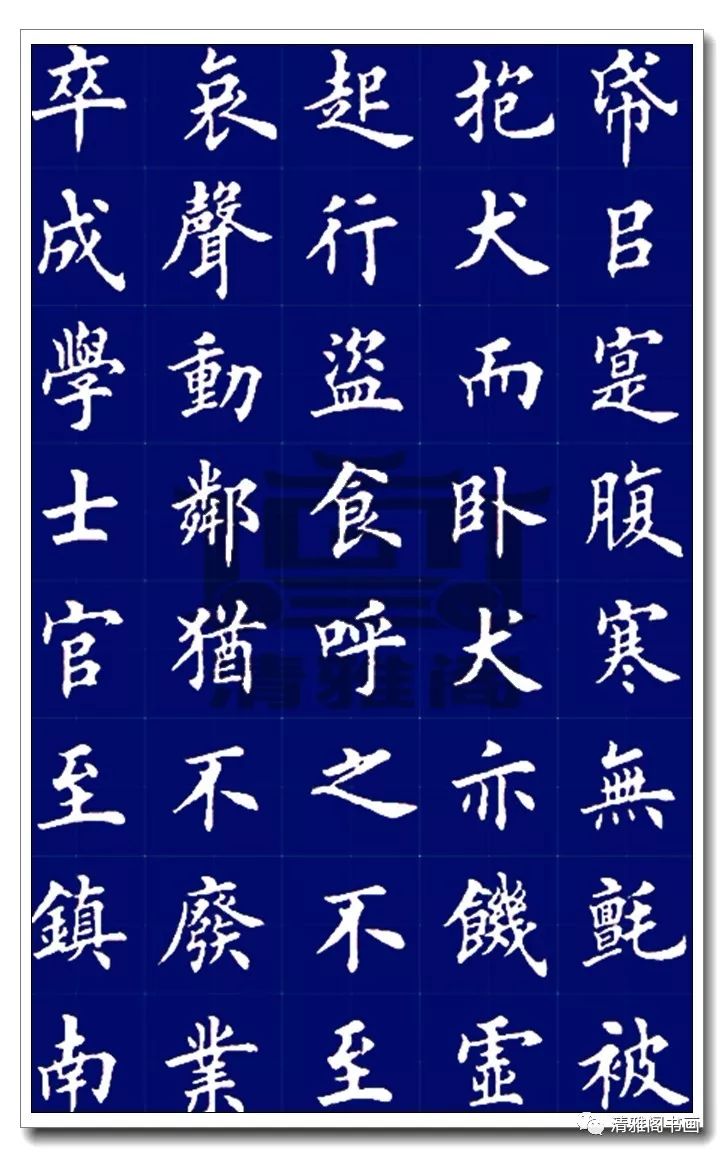 帋㠯寔腹寒無氈被
抱犬而卧犬亦饑虛
起行盜食呼之不至
哀聲動鄰猶不廢業
卒成學士官至鎮南
清雅阁
清雅阁书画